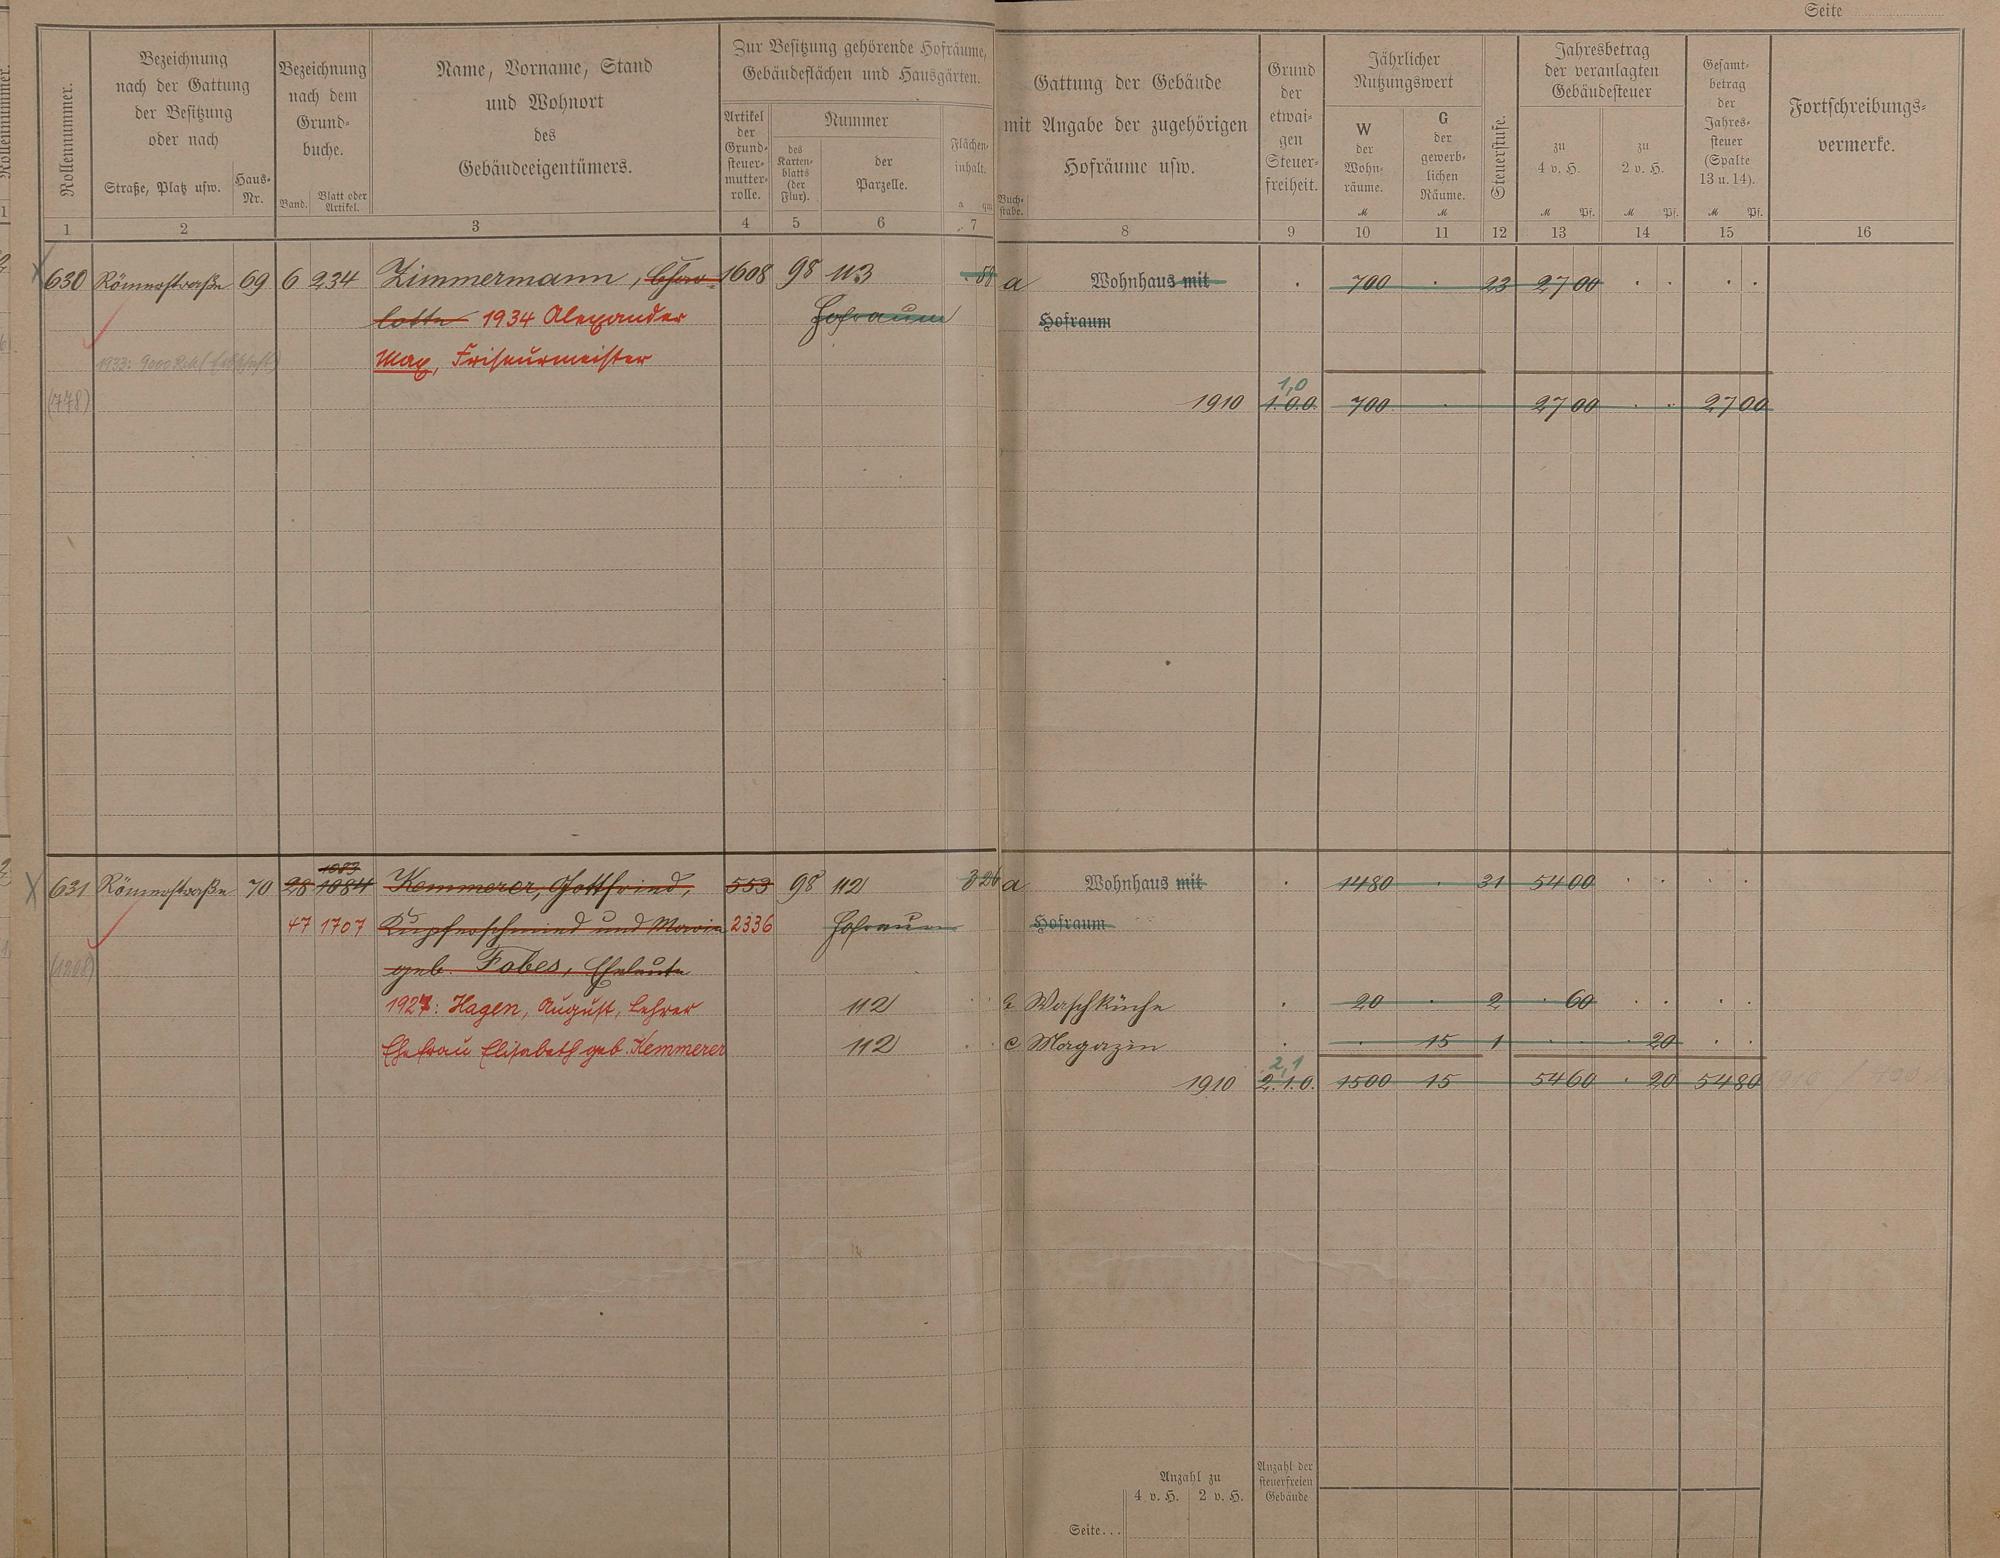 Seite
Rollennummer.
Bezeichnung
nach der Gattung
der Besitzung
oder nach
Straße, Platz usw.
Haus-
Nr.
Bezeichnung
nach dem
Grund-
buche.
Band.
Blatt oder
Artikel.
Name, Vorname, Stand
und Wohnort
des
Gebäudeeigentümers.
Zur Besitzung gehörende Hofräume,
Gebäudeflächen und Hausgärten.
Artikel
der
Grund-
steuer-
mutter-
rolle.
Nummer
des
Karten-
blatts
(der
Flur).
der
Parzelle.
Flächen-
inhalt.
a qm
Buch-
stabe.
Gattung der Gebäude
mit Angabe der zugehörigen
Hofräume usw.
Grund
der
etwai-
gen
Steuer-
freiheit.
Jährlicher
Nutzungswert
W
der
Wohn-
räume.
M
G
der
gewerb-
lichen
Räume.
M
Steuerstufe.
Jahresbetrag
der veranlagten
Gebäudesteuer
zu
4 v. H.
M Pf.
zu
2 v. H.
M Pf.
Gesamt-
betrag
der
Jahres-
steuer
(Spalte
13 u. 14).
M Pf.
Fortschreibungs-
vermerke.
1 2 3 4 5 6 7 8 9 10 11 12 13 14 15 16
630 Römerstraße 69 6 234 Zimmermann, Char- 1608 98 113 88 a Wohnhaus mit 700 23 27 00
lotte 1934 Alexander Hofraum Hofraum
Max, Friseurmeister
(778) 1910 1.0.0. 700 27 00 27 00
1,0
1083
631 Römerstraße 70 28 1084 Kemmerer, Gottfried, 553 98 112 3 26 a Wohnhaus mit 1480 31 54 00
47 1707 Kupferschmied und Maria 2336 Hofraum Hofraum
geb. Fabes, Eheleute
1927: Hagen, August, Lehrer 112 b Waschküche 20 2 60
Ehefrau Elisabeth geb. Kemmerer 112 c Magazin 15 1 20
2,1
1910 2.1.0. 1500 15 54 60 20 54 80
Anzahl zu
4 v. H. 2 v. H.
Anzahl der
steuerfreien
Gebäude
Seite...